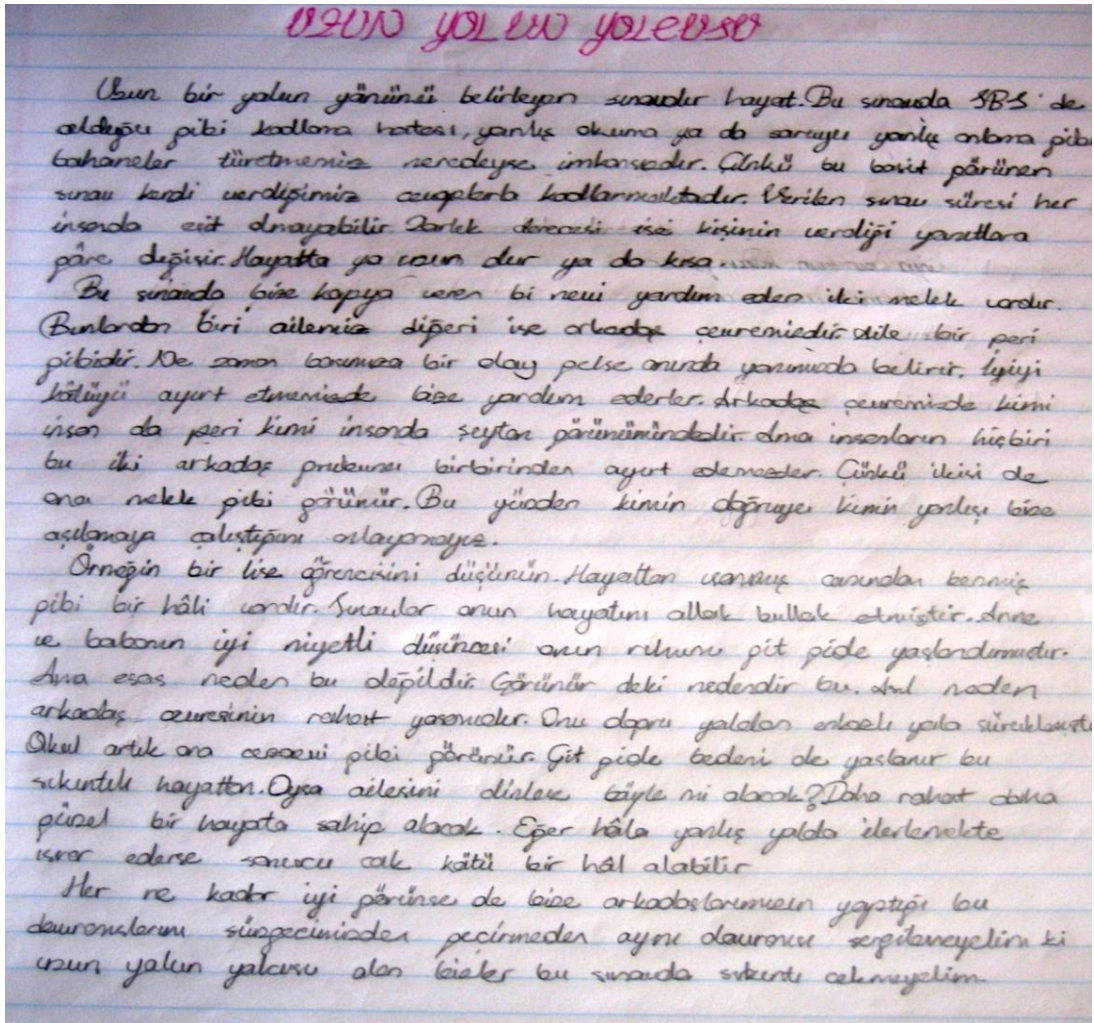 UZUN YOLUN YOLCUSU
Uzun bir yolun yönünü belirleyen sınavdır hayat. Bu sınavda SBS' de
olduğu gibi kodlama hatası, yanlış okuma ya da soruyu yanlış anlama gibi
bahaneler türetmemiz neredeyse imkansızdır. Çünkü bu basit görünen
sınav kendi verdiğimiz cevaplarla kodlanmaktadır. Verilen sınav süresi her
insanda eşit olmayabilir. Zorluk derecesi ise kişinin verdiği yanıtlara
göre değişir. Hayatta ya uzun dur ya da kısa.
Bu sınavda bize kopya veren bi nevi yardım eden iki melek vardır.
Bunlardan biri ailemiz diğeri ise arkadaş çevremizdir. Aile bir peri
gibidir. Ne zaman başımıza bir olay gelse anında yanımızda belirir. İyiyi
kötüyü ayırt etmemizde bize yardım ederler. Arkadaş çevremizde kimi
insan da peri kimi insanda şeytan görünümündedir. Ama insanların hiçbiri
bu iki arkadaş grubunu birbirinden ayırt edemezler. Çünkü ikisi de
ona melek gibi görünür. Bu yüzden kimin doğruyu kimin yanlışı bize
aşılamaya çalıştığını anlayamayız.
Örneğin bir lise öğrencisini düşünün. Hayattan usanmış canından bezmiş
gibi bir hâli vardır. Sınavlar onun hayatını allak bullak etmiştir. Anne
ve babanın iyi niyetli düşüncesi onun ruhunu git gide yaşlandırmıştır.
Ama esas neden bu değildir. Görünür deki nedendir bu. Asıl neden
arkadaş çevresinin rahat yaşamıdır. Onu doğru yoldan engelli yola sürüklemişti
Okul artık ona cezaevi gibi görünür. Git gide bedeni de yaşlanır bu
sıkıntılı hayattan. Oysa ailesini dinlese böyle mi olacak? Daha rahat daha
güzel bir hayata sahip olacak. Eğer hâla yanlış yolda ilerlemekte
ısrar ederse sonucu çok kötü bir hâl alabilir
Her ne kadar iyi görünse de bize arkadaşlarımızın yaptığı bu
davranışlarını süzgecimizden geçirmeden aynı davranışı sergilemeyelim ki
uzun yolun yolcusu olan bizler bu sınavda sıkıntı çekmeyelim.